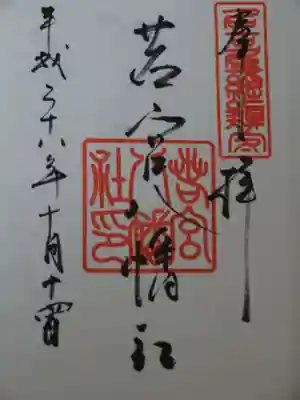 奉拝
若宮八幡社
若宮
八幡
社印
平成二十八年十月十四日